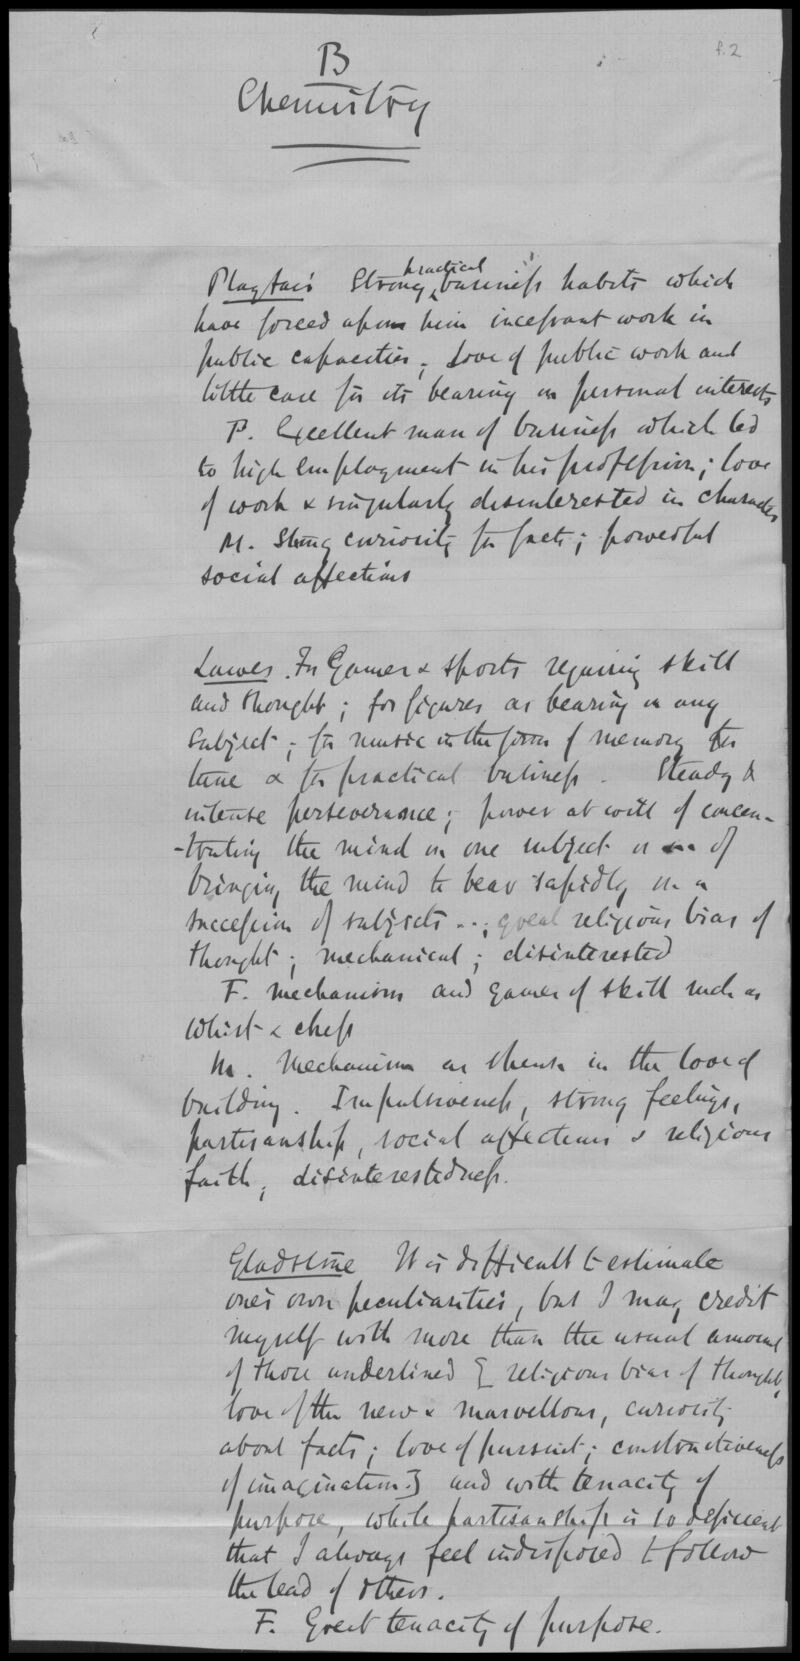 f.2
B
Chemistry
Playfair Strong practical business habits which
have forced upon him incessant work in
public capacities; Love of public work and
little care for its bearing on personal interests
P. Excellent man of business which led
to high employment in his profession; love
of work & singularly disinterested in character
M. Strong curiosity for facts; powerful
social affections
Lawes. For Games & sports requiring skill
and thought; for figures as bearing on any
subject; for music in the form of memory for
tune & for practical business. Steady &
intense perseverance; power at will of concen-
-trating the mind on one subject or of
bringing the mind to bear rapidly on a
succession of subjects ..; great religious bias of
thought; mechanical; disinterested
F. mechanism and games of skill such as
whist & chess
M. Mechanism as shewn in the love of
building. Impulsiveness, strong feelings,
partisanship, social affections & religious
faith; disinterestedness.
Gladstone It is difficult to estimate
one's own peculiarities, but I may credit
myself with more than the usual amount
of those underlined [religious bias of thought,
love of the new & marvellous, curiosity
about facts; love of pursuit; constructiveness
of imagination] and with tenacity of
purpose, while partisanship is so deficient
that I always feel indisposed to follow
the lead of others.
F. Great tenacity of purpose.